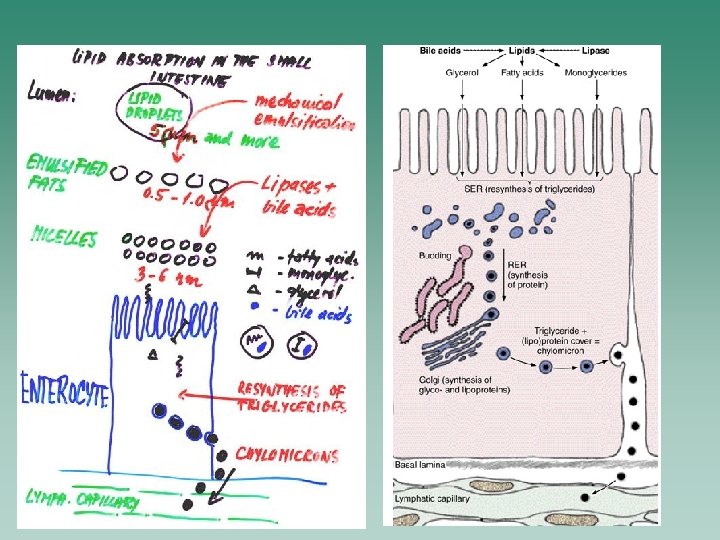 LIPID ABSORPTION IN THE SMALL
INTESTINE
Lumen:
LIPID
DROPLETS
mechanical
emulsification
5 μm and more
EMULSIFIED
FATS
0.5 - 1.0 μm
Lipases +
bile acids
MICELLES
3 - 6 nm
- fatty acids
- monoglyc.
- glycerol
- bile acids
ENTEROCYTE
RESYNTHESIS OF
TRIGLYCERIDES
CHYLOMICRONS
LYMPH. CAPILLARY
Bile acids Lipids Lipase
Glycerol Fatty acids Monoglycerides
SER (resynthesis of triglycerides)
Budding
RER
(synthesis
of protein)
Triglyceride +
(lipo)protein cover =
chylomicron
Golgi (synthesis of
glyco- and lipoproteins)
Basal lamina
Lymphatic capillary